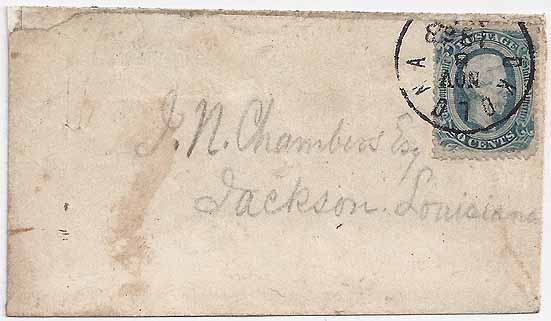 POSTAGE
CENTS
J. N. Chambers Esq
Jackson. Louisiana